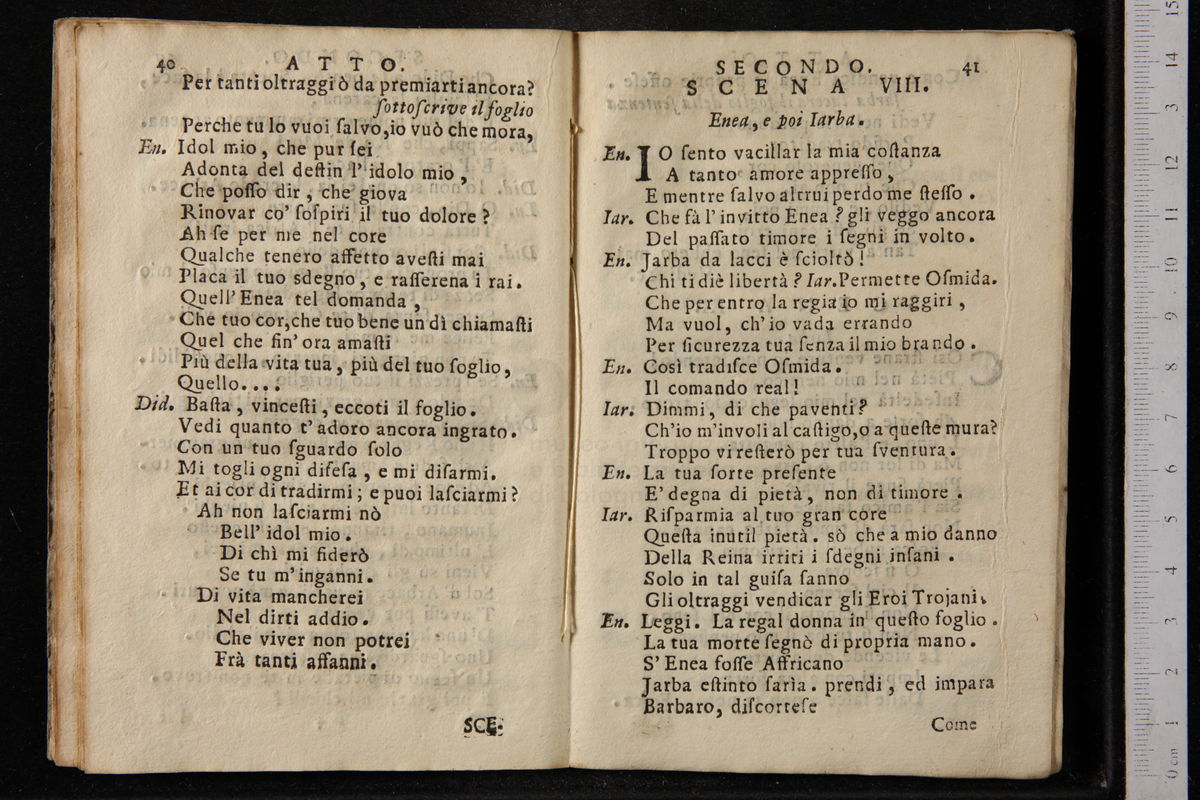 40 ATTO.
Per tanti oltraggi ò da premiarti ancora?
ſottoſcrive il foglio
Perche tu lo vuoi ſalvo, io vuò che mora,
En. Idol mio, che pur ſei
Adonta del deſtin l' idolo mio,
Che poſſo dir, che giova
Rinovar co' ſoſpiri il tuo dolore?
Ah ſe per me nel core
Qualche tenero affetto aveſti mai
Placa il tuo sdegno, e raſſerena i rai.
Quell' Enea tel domanda,
Che tuo cor, che tuo bene un dì chiamaſti
Quel che ſin' ora amaſti
Più della vita tua, più del tuo ſoglio,
Quello....
Did. Baſta, vinceſti, eccoti il foglio.
Vedi quanto t' adoro ancora ingrato.
Con un tuo ſguardo ſolo
Mi togli ogni difeſa, e mi diſarmi.
Et ai cor di tradirmi; e puoi laſciarmi?
Ah non laſciarmi nò
Bell' idol mio.
Di chì mi fiderò
Se tu m' inganni.
Di vita mancherei
Nel dirti addio.
Che viver non potrei
Frà tanti affanni.
SCE.
SECONDO. 41
SCENA VIII.
Enea, e poi Iarba.
En. IO ſento vacillar la mia coſtanza
A tanto amore appreſſo,
E mentre ſalvo altrui perdo me ſteſſo.
Iar. Che fà l' invitto Enea? gli veggo ancora
Del paſſato timore i ſegni in volto.
En. Jarba da lacci è ſcioltò!
Chi ti diè libertà? Iar. Permette Oſmida.
Che per entro la regia io mi raggiri,
Ma vuol, ch' io vada errando
Per ſicurezza tua ſenza il mio brando.
En. Così tradiſce Oſmida.
Il comando real!
Iar. Dimmi, di che paventi?
Ch'io m'involi al caſtigo, o a queſte mura?
Troppo vi reſterò per tua ſventura.
En. La tua ſorte preſente
E' degna di pietà, non di timore.
Iar. Riſparmia al tuo gran core
Queſta inutil pietà. sò che a mio danno
Della Reina irriti i ſdegni inſani.
Solo in tal guiſa ſanno
Gli oltraggi vendicar gli Eroi Trojani.
En. Leggi. La regal donna in queſto foglio.
La tua morte ſegnò di propria mano.
S' Enea foſſe Affricano
Jarba eſtinto ſarìa. prendi, ed impara
Barbaro, diſcorteſe
Come